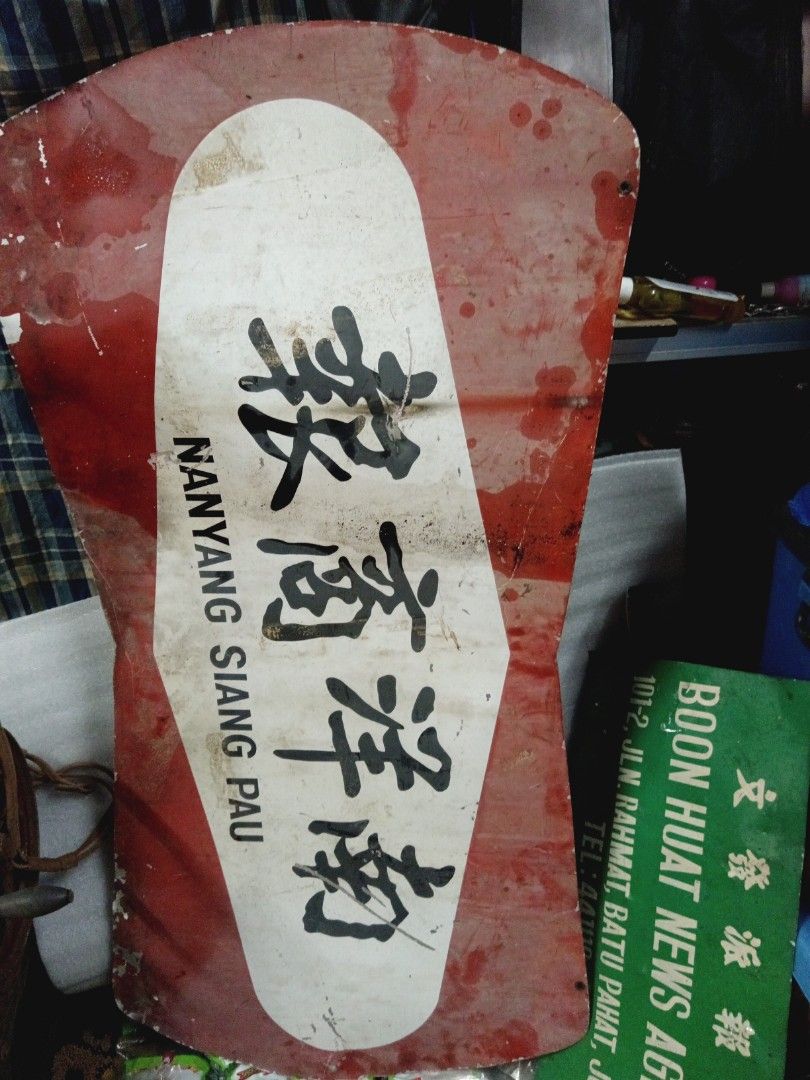 南洋商報
NANYANG SIANG PAU
文發派報
BOON HUAT NEWS AG
101-2, JLN RAHMAT, BATU PAHAT, J
TEL: